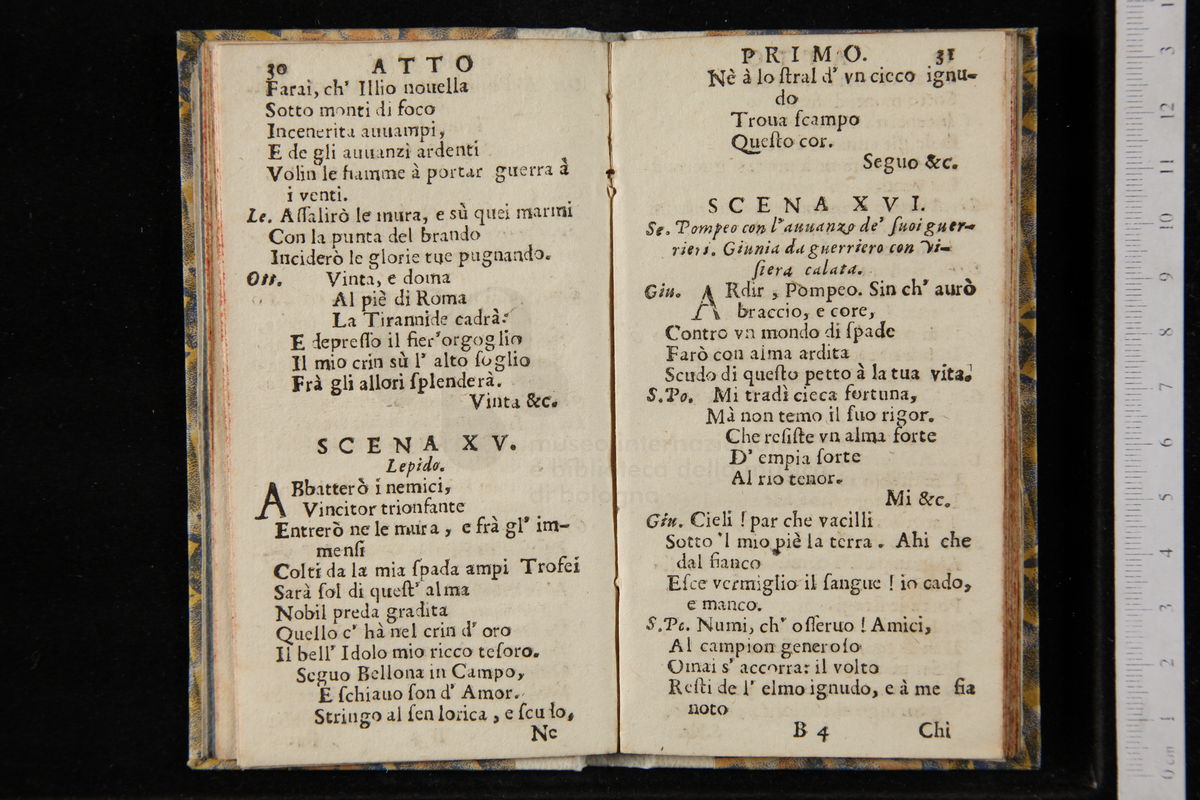 30 ATTO
Farai, ch' Illio nouella
Sotto monti di foco
Incenerita auuampi,
E de gli auuanzi ardenti
Volin le fiamme à portar guerra à
i venti.
Le. Aſſalirò le mura, e sù quei marmi
Con la punta del brando
Inciderò le glorie tue pugnando.
Ott. Vinta, e doma
Al piè di Roma
La Tirannide cadrà:
E depreſſo il fier'orgoglio
Il mio crin sù l' alto ſoglio
Frà gli allori ſplenderà.
Vinta &c.
SCENA XV.
Lepido.
ABbatterò i nemici,
Vincitor trionfante
Entrerò ne le mura, e frà gl' im-
menſi
Colti da la mia ſpada ampi Trofei
Sarà ſol di queſt' alma
Nobil preda gradita
Quello c' hà nel crin d' oro
Il bell' Idolo mio ricco teſoro.
Seguo Bellona in Campo,
E ſchiauo ſon d' Amor.
Stringo al ſen lorica, e ſcudo,
Ne
PRIMO. 31
Nè à lo ſtral d' vn cieco ignu-
do
Troua ſcampo
Queſto cor.
Seguo &c.
SCENA XVI.
Se. Pompeo con l'auuanzo de' ſuoi guer-
rieri. Giunia da guerriero con Vi-
ſiera calata.
Giu. ARdir, Pompeo. Sin ch' aurò
braccio, e core,
Contro vn mondo di ſpade
Farò con alma ardita
Scudo di queſto petto à la tua vita.
S.Po. Mi tradì cieca fortuna,
Mà non temo il ſuo rigor.
Che reſiſte vn alma forte
D' empia ſorte
Al rio tenor.
Mi &c.
Giu. Cieli! par che vacilli
Sotto 'l mio piè la terra. Ahi che
dal fianco
Eſce vermiglio il ſangue! io cado,
e manco.
S.Po. Numi, ch' oſſeruo! Amici,
Al campion generoſo
Omai s' accorra: il volto
Reſti de l' elmo ignudo, e à me fia
noto
B 4 Chi
museo internazi
e biblioteca della
di bologna
0 cm 1 2 3 4 5 6 7 8 9 10 11 12 3